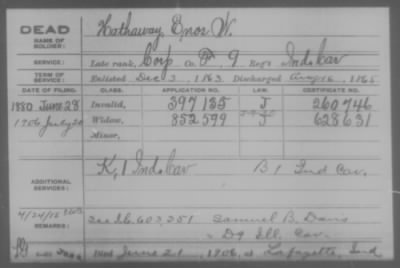 DEAD
NAME OF SOLDIER:
Hathaway, Enor W.
SERVICE:
Late rank, Corp Co. F, 9 Reg't Ind. Cav
TERM OF SERVICE:
Enlisted Dec 3, 1863 Discharged Aug 16, 1865
DATE OF FILING. CLASS. APPLICATION NO. LAW. CERTIFICATE NO.
1880 June 28 Invalid, 397135 J 260746
1906 July 20 Widow, 852599 J 628631
Minor,
ADDITIONAL SERVICES:
K, 1 Ind. Cav B 1 Ind Cav.
4/24/12
REMARKS:
603,251 Samuel B. Davis
D 9 Ill. Cav.
Died June 21, 1906, at Lafayette, Ind